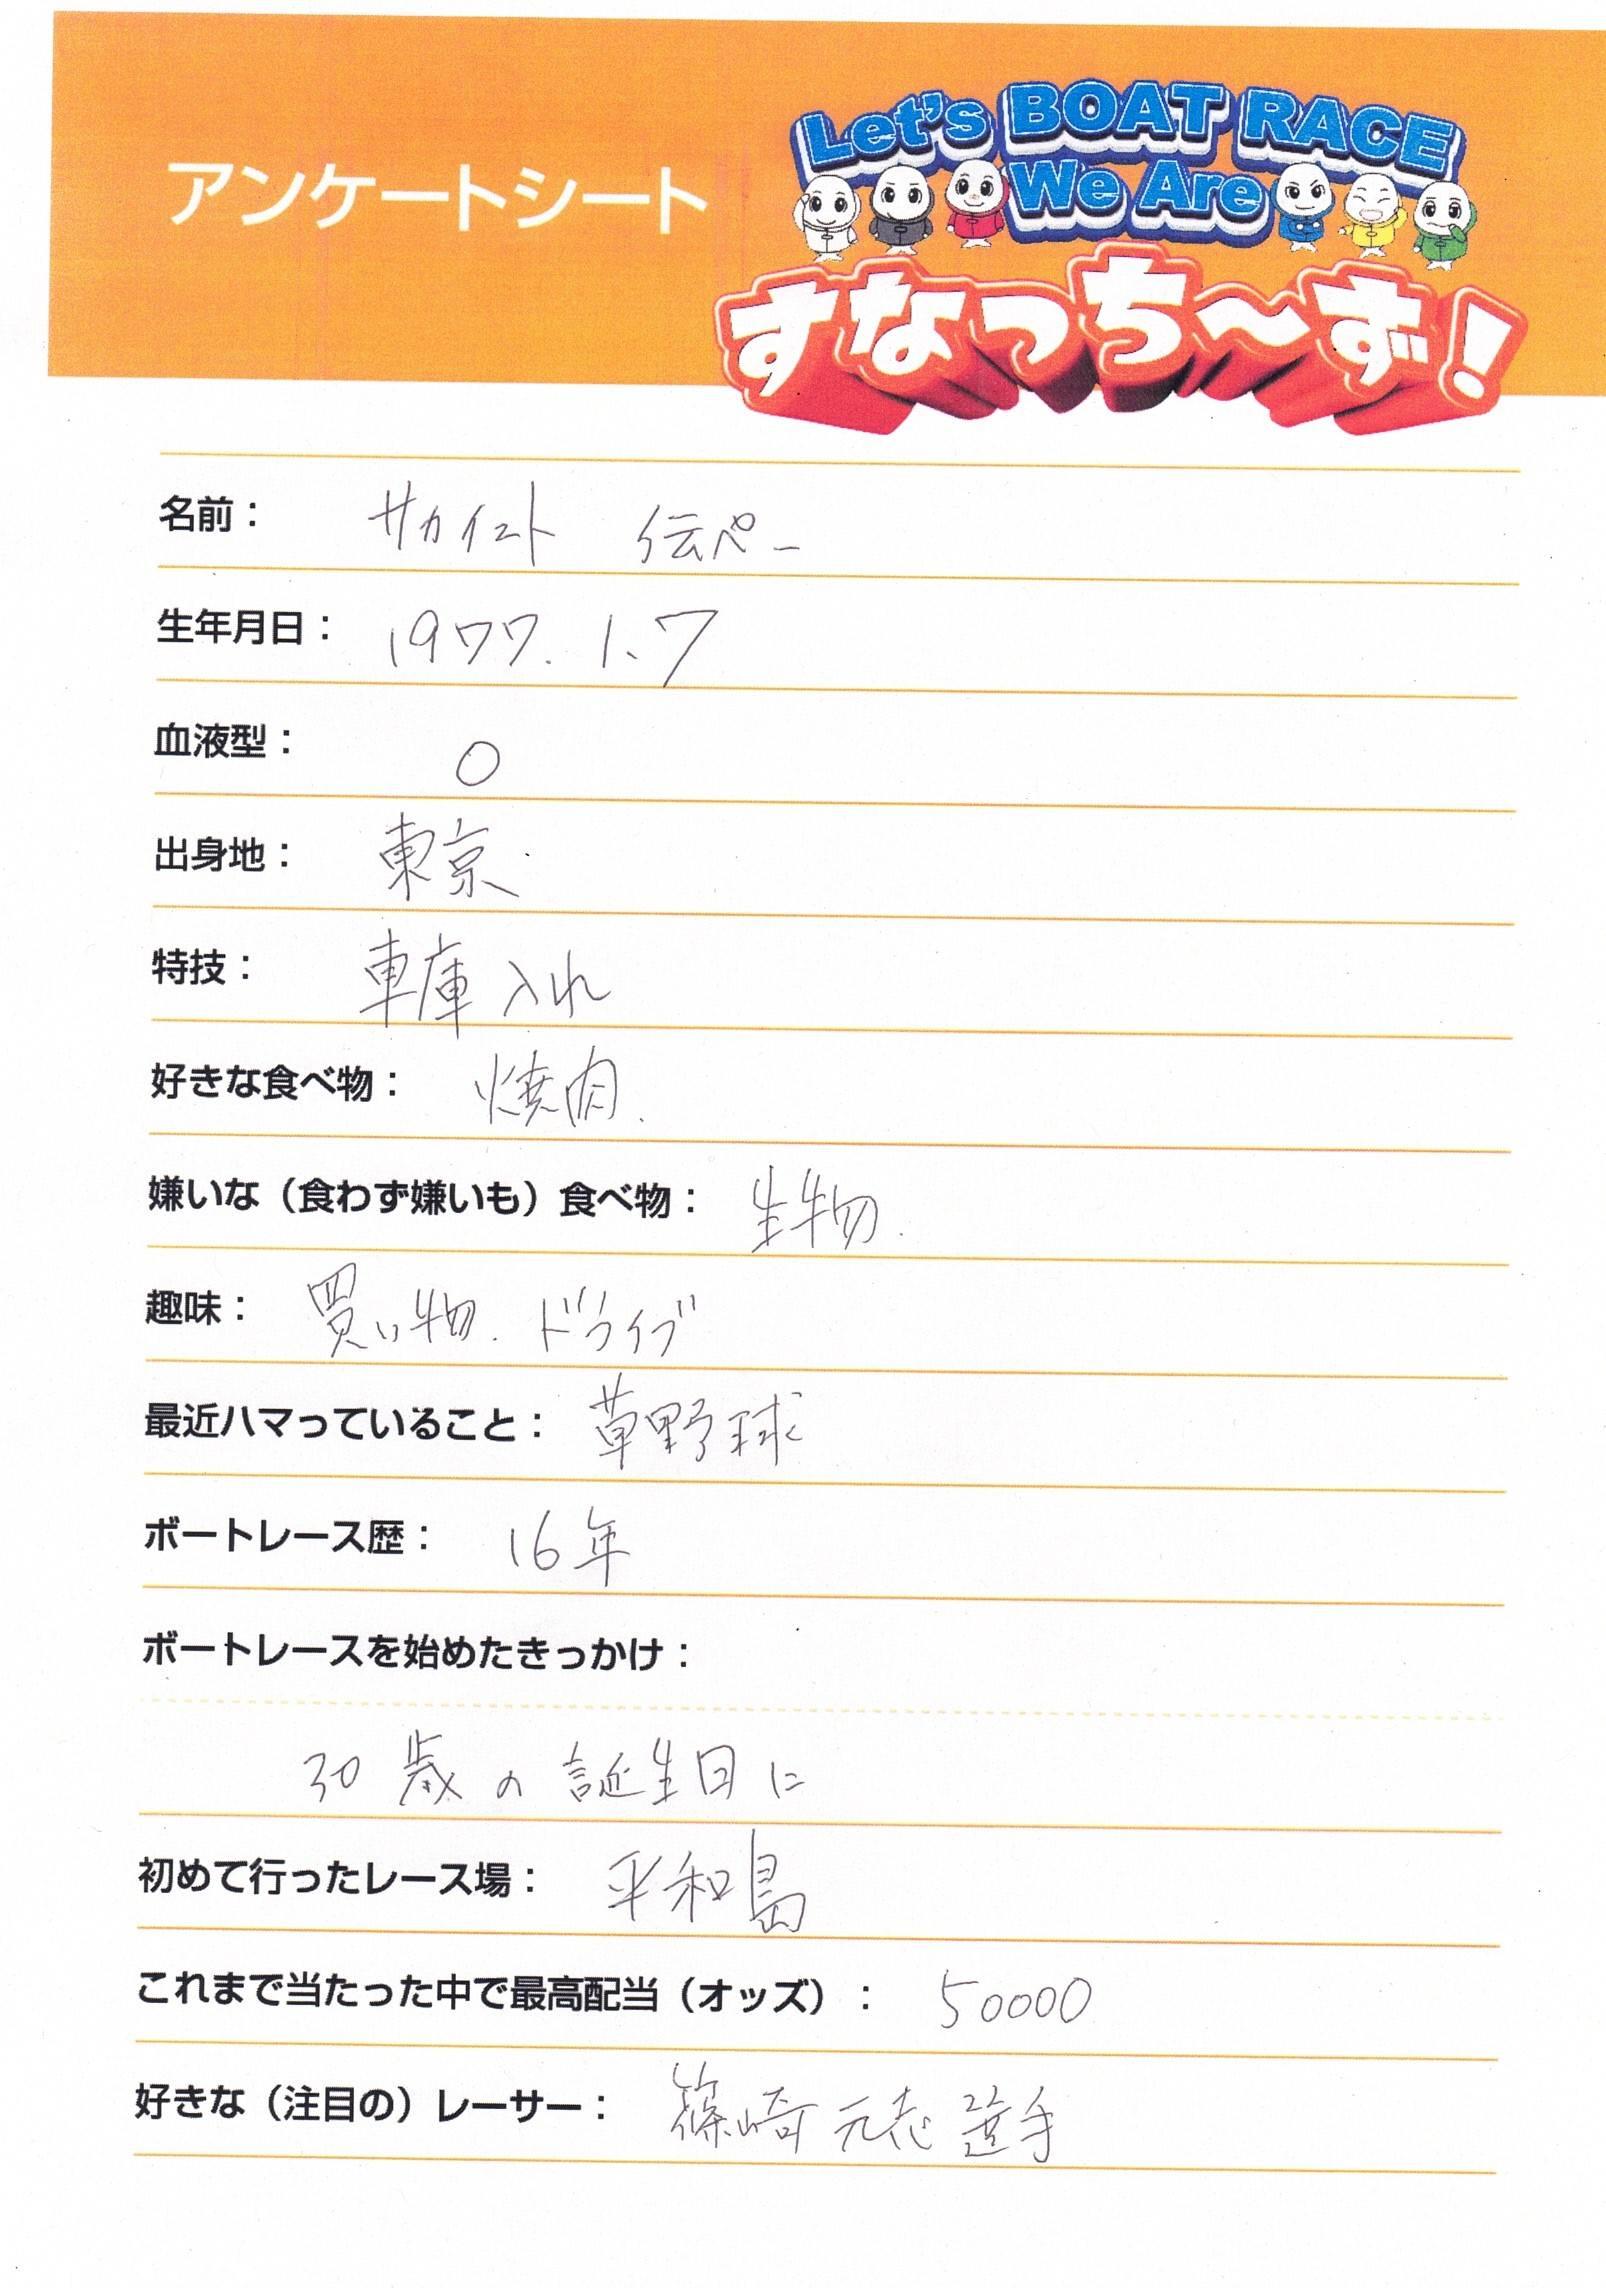 アンケートシート
Let's BOAT RACE
We Are
すなっち〜ず!
名前： サカイスト 伝ペー
生年月日： 1977. 1. 7
血液型： O
出身地： 東京.
特技： 車庫入れ
好きな食べ物： 焼肉.
嫌いな（食わず嫌いも）食べ物： 生物.
趣味： 買い物. ドライブ
最近ハマっていること： 草野球
ボートレース歴： 16年
ボートレースを始めたきっかけ：
30歳の誕生日に
初めて行ったレース場： 平和島
これまで当たった中で最高配当（オッズ）： 50000
好きな（注目の）レーサー： 篠崎元志選手